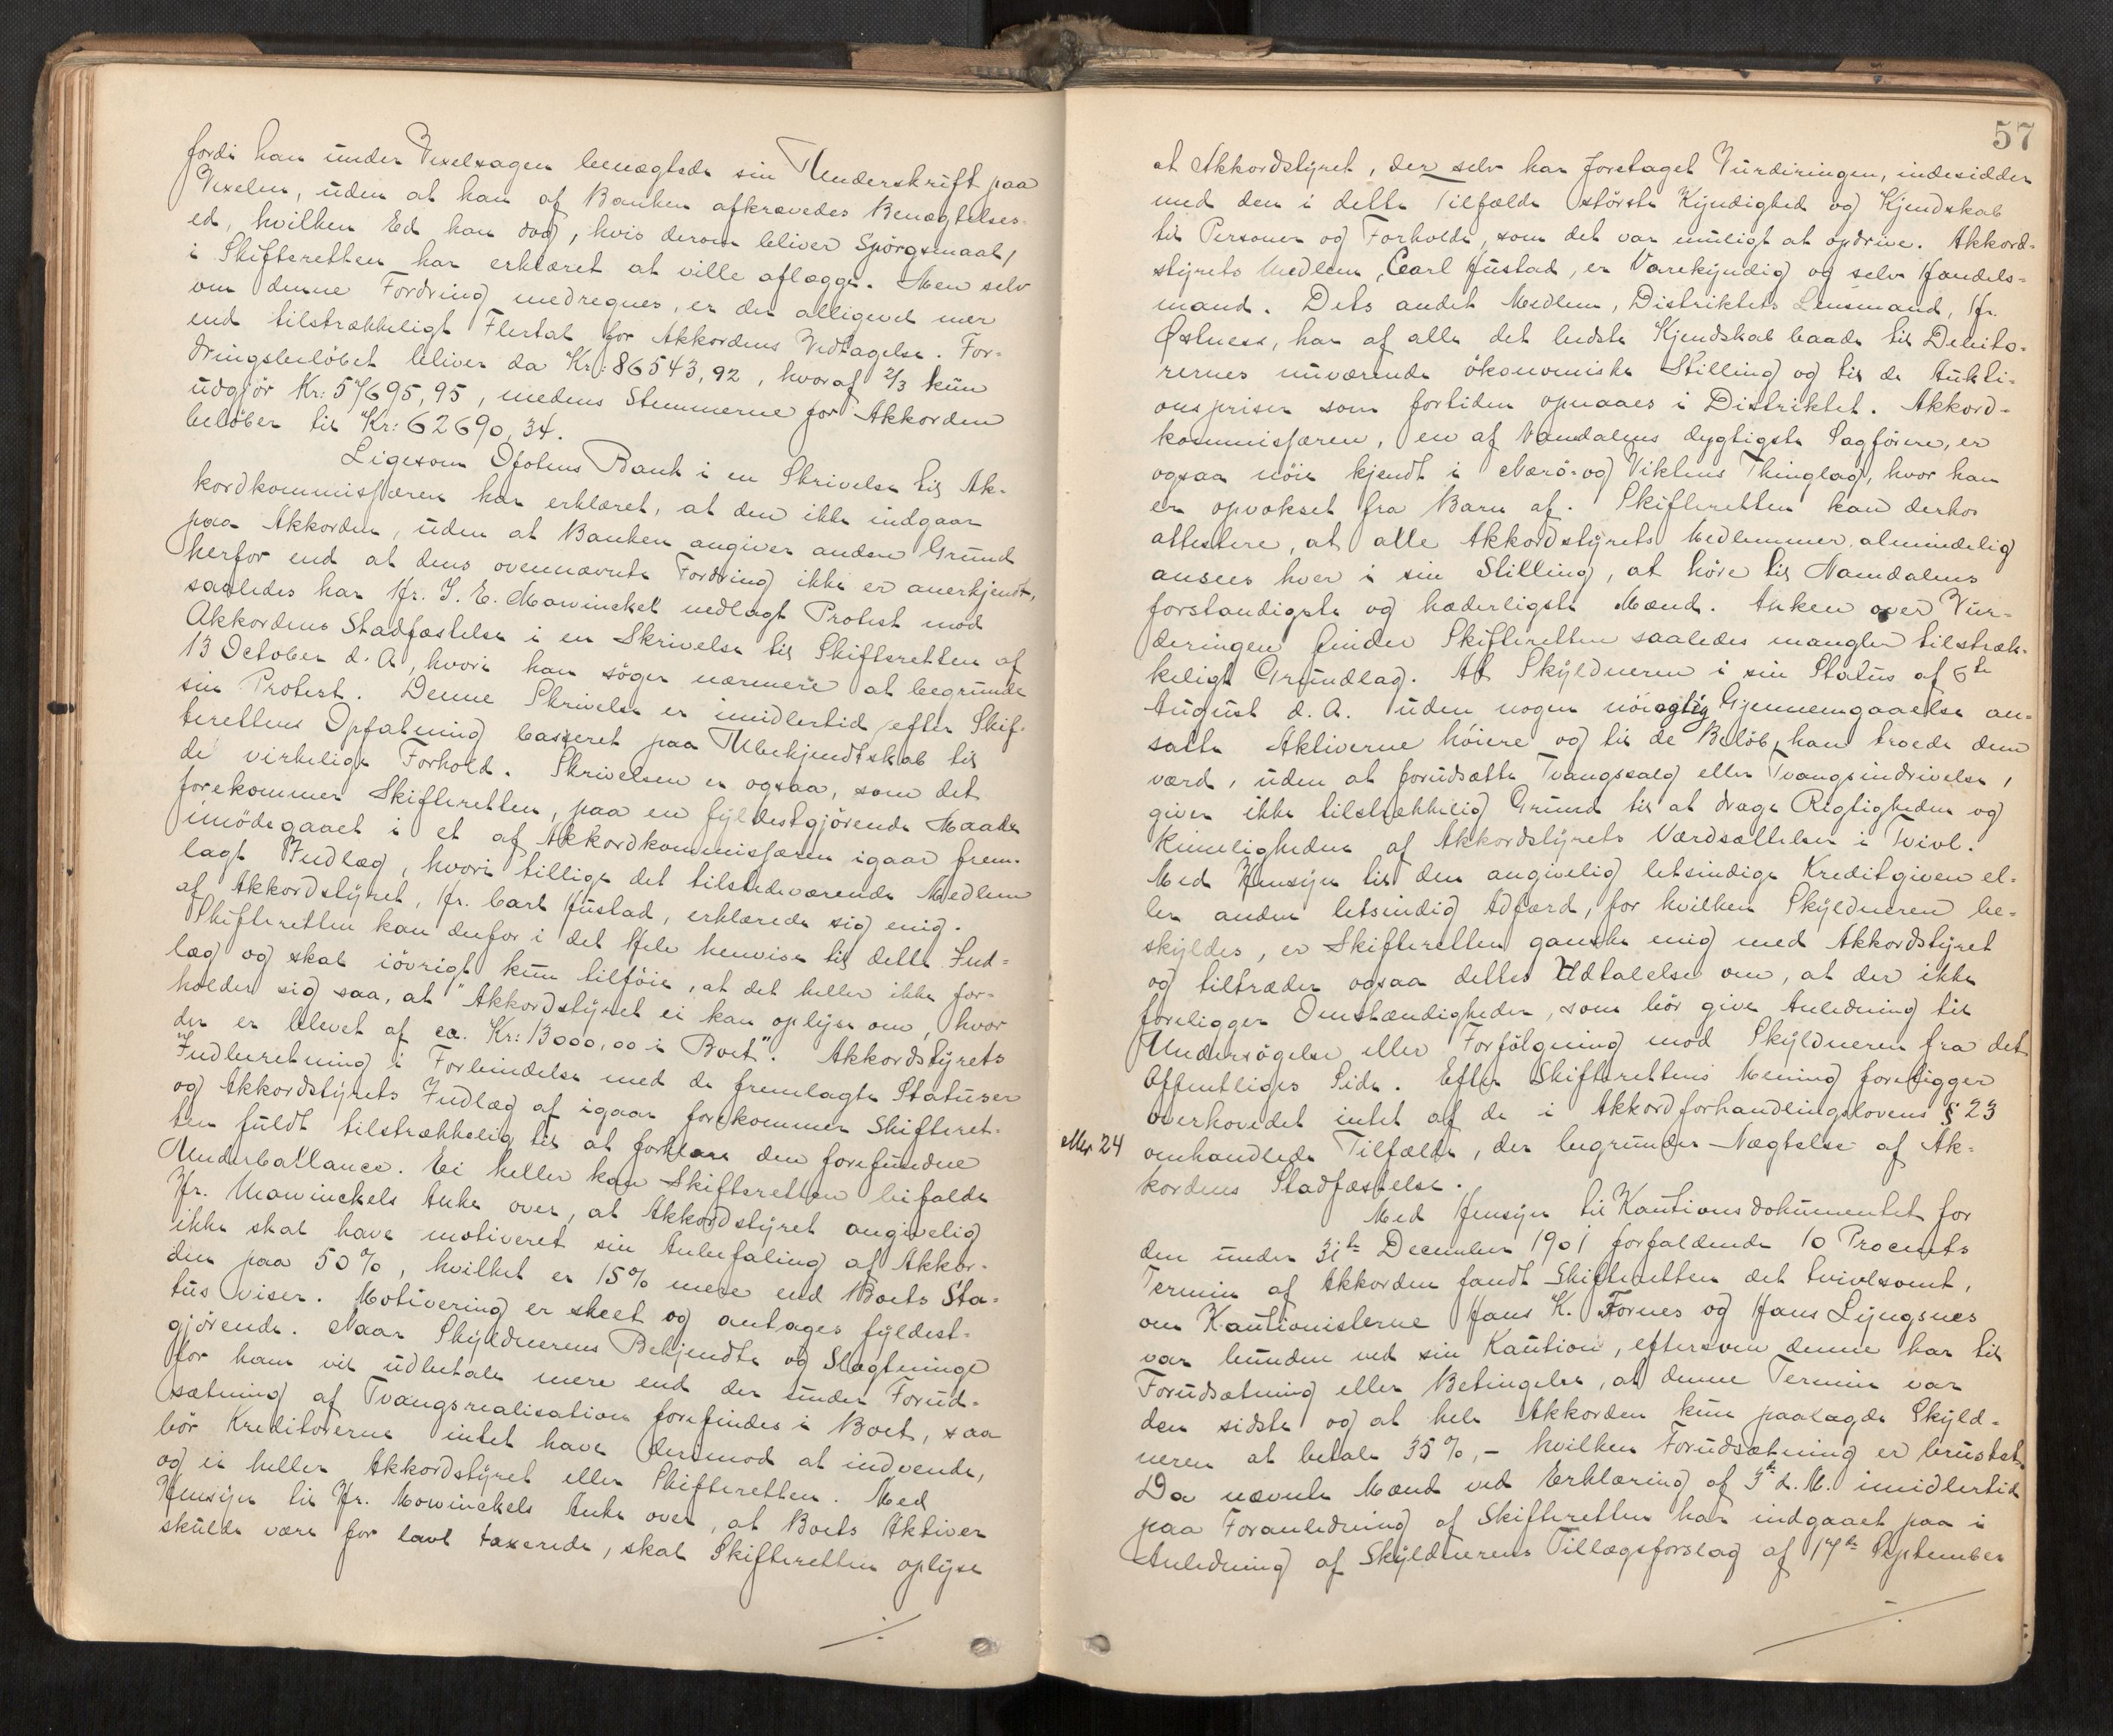 fordi han under Vexelsagen benægtede sin Underskrift paa
Vexelen, uden at han af Banken afkrævedes Benægtelses-
ed, hvilken Ed han dog, hvis derom bliver Spörgsmaal,
i Skifteretten har erklæret at ville aflægge. Men selv
om denne Fordring medregnes, er der alligevel mer
end tilstrækkeligt Flertal for Akkordens Vedtagelse. For-
dringsbelöbet bliver da Kr: 86543,92, hvoraf 2/3 kun
udgjör Kr: 57695,95, medens Stemmerne for Akkorden
belöber til Kr: 62690,34.
Ligesom Ofotens Bank i en Skrivelse til Ak-
kordkommissæren har erklæret, at den ikke indgaar
paa Akkorden, uden at Banken angiver anden Grund
herfor end at dens ovennævnte Fordring ikke er anerkjendt,
saaledes har Hr. J. E. Mowinckel nedlagt Protest mod
Akkordens Stadfæstelse i en Skrivelse til Skifteretten af
13 October d. A, hvori han söger nærmere at begrunde
sin Protest. Denne Skrivelse er imidlertid efter Skif-
terettens Opfatning basseret paa Ubekjendtskab til
de virkelige Forhold. Skrivelsen er ogsaa, som det
forekommer Skifteretten, paa en fyldestgjörende Maade
imödegaaet i et af Akkordkommissæren igaar frem-
lagt Indlæg, hvori tillige det tilstedeværende Medlem
af Akkordstyret, Hr. Carl Hustad, erklærede sig enig.
Skifteretten kan derfor i det Hele henvise til dette Ind-
læg og skal iövrigt kun tilföie, at det heller ikke for-
holder sig saa, at "Akkordstyret ei kan oplyse om, hvor
der er blevet af ca. Kr: 13000,00 i Boet". Akkordstyrets
Indberetning i Forbindelse med de fremlagte Statuser
og Akkordstyrets Indlæg af igaar forekommer Skifteret-
ten fuldt tilstrækkelig til at forklare den forefundne
Underballance. Ei heller kan Skifteretten bifalde
Hr. Mowinckels Anke over, at Akkordstyret angivelig
ikke skal have motiveret sin Anbefaling af Akkor-
den paa 50%, hvilket er 15% mere end Boets Sta-
tus viser. Motivering er skeet og antages fyldest-
gjörende. Naar Skyldnerens Bekjendte og Slægtninge
for ham vil udbetale mere end der under Forud-
sætning af Tvangsrealisation forefindes i Boet, saa
bör Kreditorerne intet have derimod at indvende,
og ei heller Akkordstyret eller Skifteretten. Med
Hensyn til Hr. Mowinckels Anke over, at Boets Aktiver
skulde være for lavt taxerede, skal Skifteretten oplyse
./.
57
at Akkordstyret, der selv har foretaget Vurderingen, indesidder
med den i dette Tilfælde störste Kyndighed og Kjendskab
til Personer og Forholde, som det var muligt at opdrive. Akkord-
styrets Medlem, Carl Hustad, er Varekyndig og selv Handels-
mand. Dets andet Medlem, Distriktets Lensmand, Hr.
Østness, har af alle det bedste Kjendskab baade til Debito-
rernes nuværende ökonomiske Stilling og til de Aukti-
onspriser som fortiden opnaaes i Distriktet. Akkord-
kommissæren, en af Namdalens dygtigste Sagförere, er
ogsaa nöie kjendt i Nærö- og Viktens Thinglag, hvor han
er opvokset fra Barn af. Skifteretten kan derhos
attestere, at alle Akkordstyrets Medlemmer almindelig
ansees hver i sin Stilling, at höre til Namdalens
forstandigste og hæderligste Mænd. Anken over Vur-
deringen finder Skifteretten saaledes mangler tilstræk-
keligt Grundlag. At Skyldneren i sin Status af 6te
August d. A. uden nogen nöiagtig Gjennemgaaelse an-
satte Aktiverne höiere og til de Belöb, han troede dem
værd, uden at forudsætte Tvangssalg eller Tvangsindrivelse,
giver ikke tilstrækkelig Grund til at drage Rigtigheden og
Rimeligheden af Akkordstyrets Værdsættelser i Tvivl.
Med Hensyn til den angivelig letsindige Kreditgiven el-
ler anden letsindig Adfærd, for hvilken Skyldneren be-
skyldes, er Skifteretten ganske enig med Akkordstyret
og tiltræder ogsaa dettes Udtalelse om, at der ikke
foreligger Omstændigheder, som bör give Anledning til
Undersögelse eller Forfölgning mod Skyldneren fra det
Offentliges Side. Efter Skifterettens Mening foreligger
overhovedet intet af de i Akkordforhandlingslovens § 23
eller 24 omhandlede Tilfælde, der begrunder Nægtelse af Ak-
kordens Stadfæstelse.
Med Hensyn til Kautionsdokumentet for
den under 31te December 1901 forfaldende 10 Procents
Termin af Akkorden fandt Skifteretten det tvivlsomt,
om Kautionisterne Hans K. Fornes og Hans Lyngsnes
var bunden ved sin Kaution, eftersom denne har til
Forudsætning eller Betingelse, at denne Termin var
den sidste og at hele Akkorden kun paalagde Skyld-
neren at betale 35%, – hvilken Forudsætning er brustet.
Da nævnte Mænd ved Erklæring af 3de d. M. imidlertid
paa Foranledning af Skifteretten har indgaaet paa i
Anledning af Skyldnerens Tillægsforslag af 17de September
./.